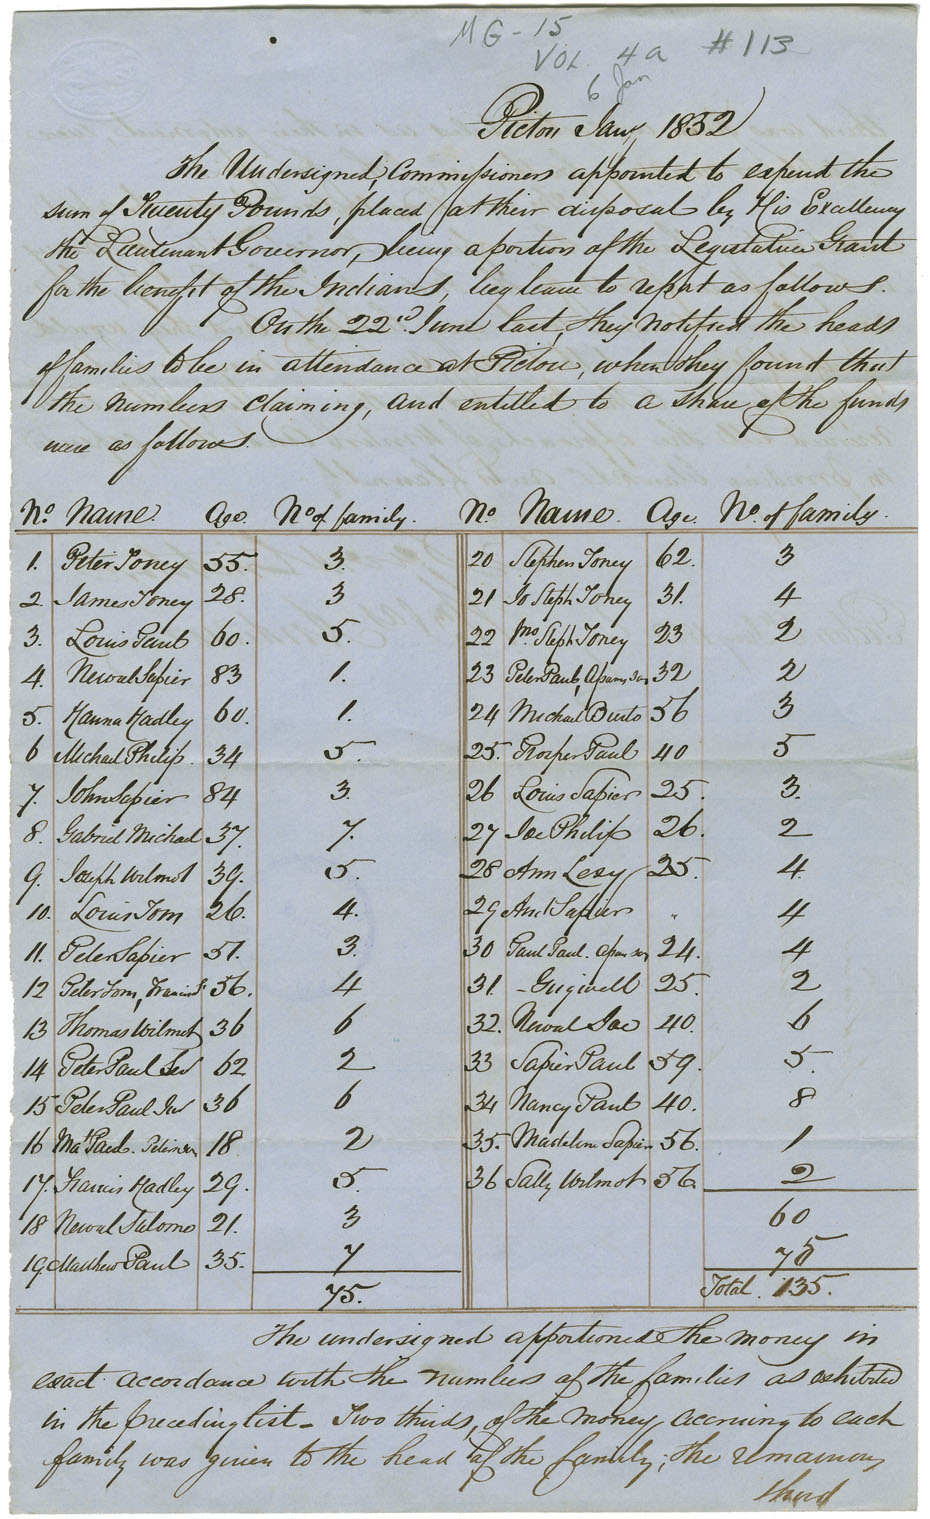 MG-15
VOL 4a #113
6 Jan
Pictou Jany 1852
The Undersigned, Commissioners appointed to expend the
sum of Twenty Pounds, placed at their disposal by His Excellency
the Lieutenant Governor, being a portion of the Legislative Grant
for the benefit of the Indians, beg leave to report as follows.
On the 22nd June last, they notified the heads
of families to be in attendance at Pictou, when they found that
the numbers claiming, and entitled to a share of the funds
were as follows.
No. Name. Age. No of family. No Name. Age. No. of family.
1. Peter Toney 55. 3. 20 Stephen Toney 62. 3
2. James Toney 28. 3 21 Jo Steph Toney 31. 4
3. Louis Paul 60. 5. 22 Steph Toney 23 2
4. Newal Sapier 83 1. 23 Peter Paul, 32 2
5. Hanna Hadley 60. 1. 24 Michael 56 3
6 Michael Philip. 34 5. 25. Prosper Paul 40 5
7. John Sapier 84 3. 26 Louis Sapier 25. 3.
8. Gabriel Michael 37. 7. 27 Joe Philip 26. 2
9. Joseph Wilmot 39. 5. 28 Ann Lexy 25. 4.
10. Louis Tom 26. 4. 29 Sapier " 4
11. Peter Sapier 51. 3. 30 Paul Paul. 24. 4
12 Peter Tom, 56. 4 31. 25. 2
13 Thomas Wilmot 36 6 32. Newal Joe 40. 6
14 Peter Paul Sen 62 2 33 Sapier Paul 59. 5.
15 Peter Paul Jnr 36 6 34 Nancy Paul 40. 8
16 Paul. 18 2 35. Madeline Sapier 56. 1
17. Francis Hadley 29. 5. 36 Sally Wilmot 56. 2
18 Newal 21. 3 60
19. Matthew Paul 35. 7 75
75. Total. 135.
The undersigned apportioned the money in
exact accordance with the numbers of the families as exhibited
in the preceding list - Two thirds, of the money accruing to each
family was given to the head of the family; the remaining
third